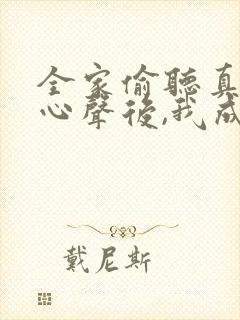 全家偷聽真
心聲後,我成
戴尼斯